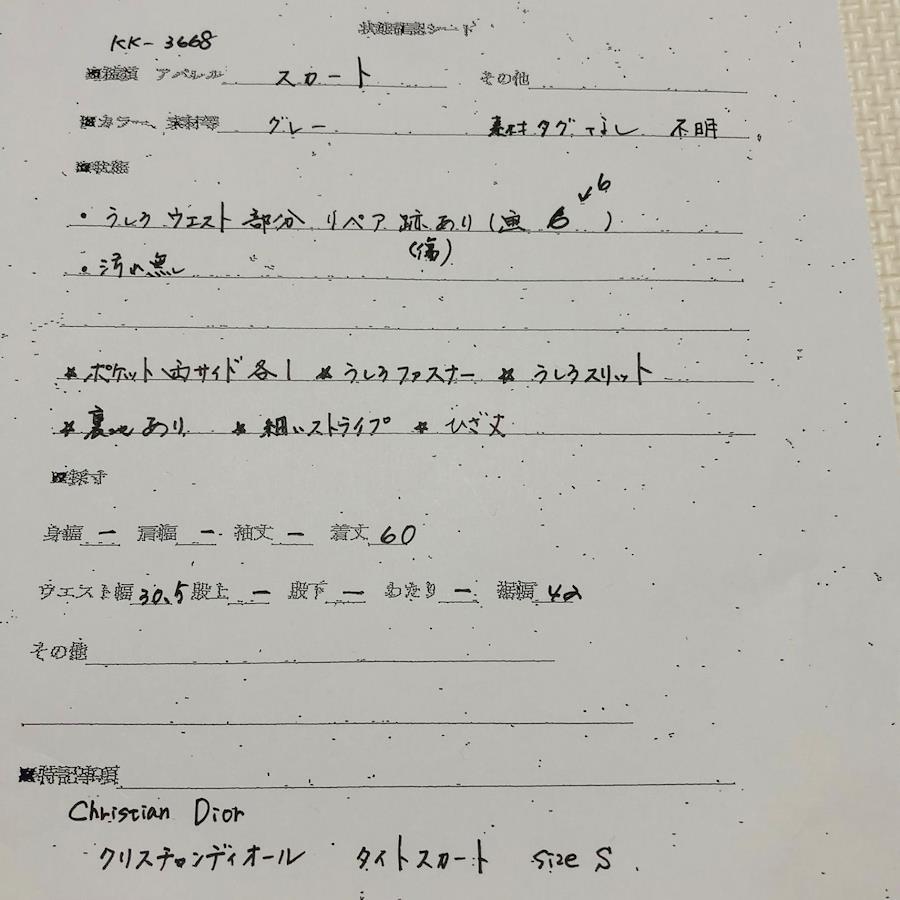 状態確認シート
KK-3668
■種類 アパレル スカート その他
■カラー、素材等 グレー 素材タグなし 不明
■状態
・うしろウエスト部分 リペア跡あり(画 6 ↙6)
(傷)
・汚れ無し
☆ポケット両サイド各1 ☆うしろファスナー ☆うしろスリット
☆裏地あり ☆細いストライプ ☆ひざ丈
■採寸
身幅 ー 肩幅 ー 袖丈 ー 着丈 60
ウエスト幅 30.5 股上 ー 股下 ー わたり ー 裾幅 42
その他
■特記事項
Christian Dior
クリスチャンディオール タイトスカート size S.